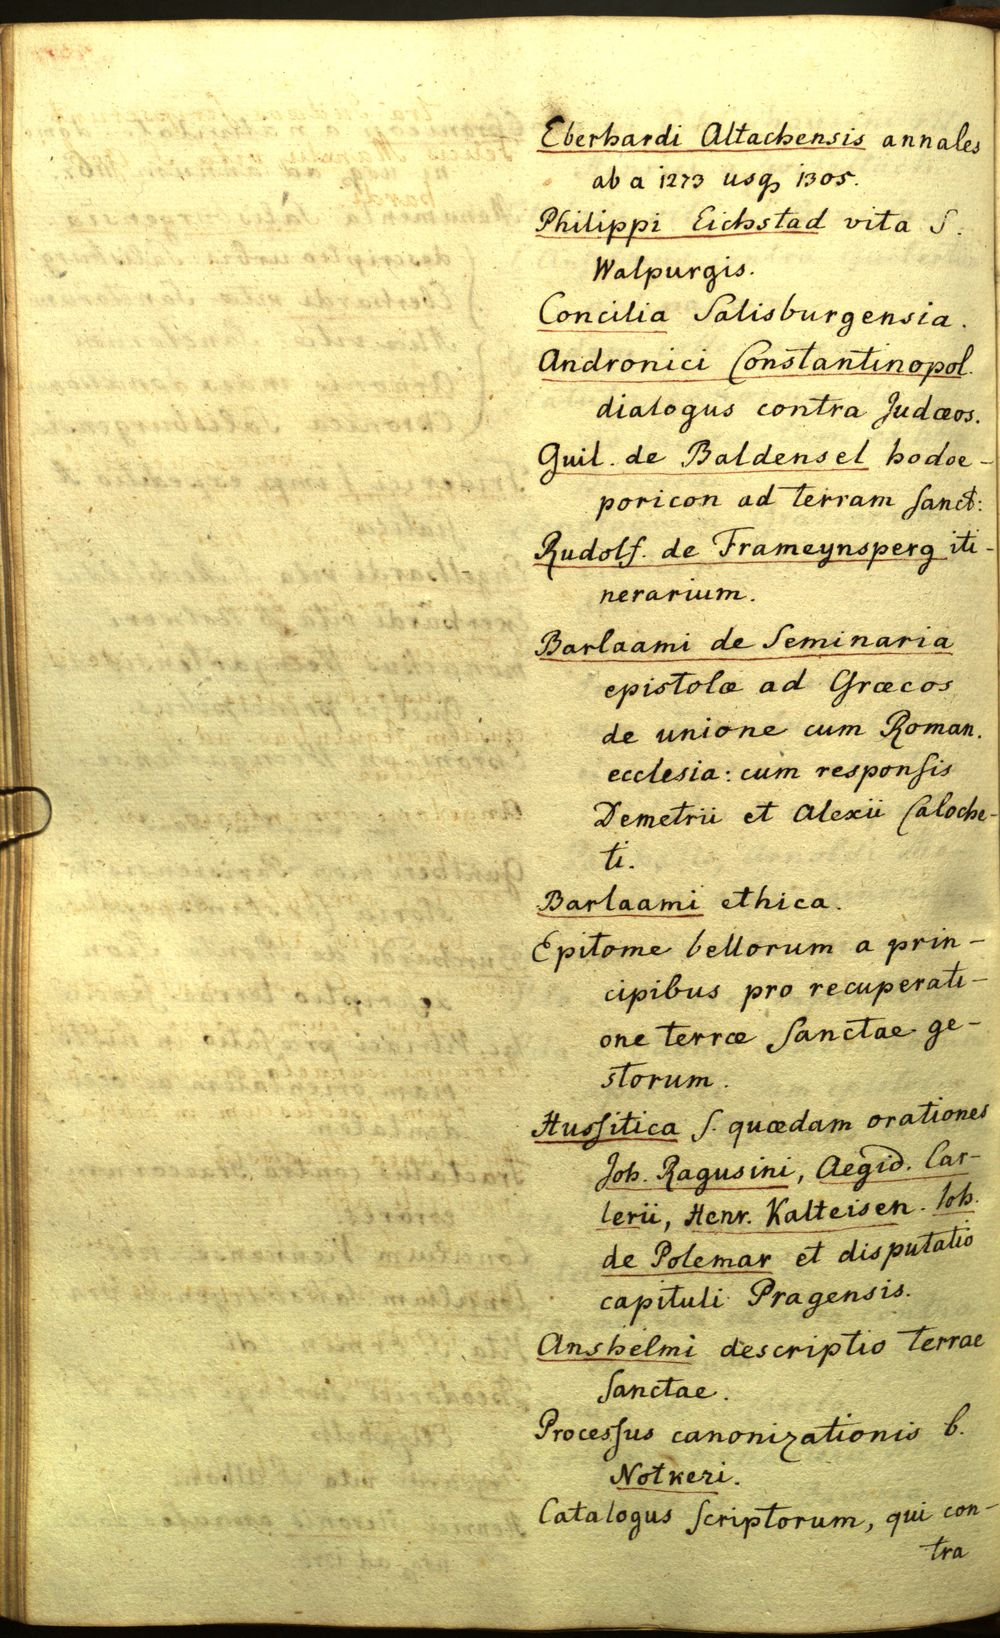 Eberhardi Altachensis annales
ab a 1273 usq3 1305.
Philippi Eichstad vita S.
Walpurgis.
Concilia Salisburgensia.
Andronici Constantinopol.
dialogus contra Judæos.
Guil. de Baldensel hodoe-
poricon ad terram Sanct:
Rudolf. de Frameynsperg iti-
nerarium.
Barlaami de Seminaria
epistolæ ad Græcos
de unione cum Roman.
ecclesia: cum responsis
Demetrii et Alexii Caloche-
ti.
Barlaami ethica.
Epitome bellorum a prin-
cipibus pro recuperati-
one terræ Sanctae ge-
storum.
Hussitica S. quædam orationes
Joh. Ragusini, Aegid. Car-
lerii, Henr. Kalteisen. Ioh.
de Polemar et disputatio
capituli Pragensis.
Anshelmi descriptio terrae
Sanctae.
Processus canonizationis b.
Notkeri.
Catalogus Scriptorum, qui con-
tra